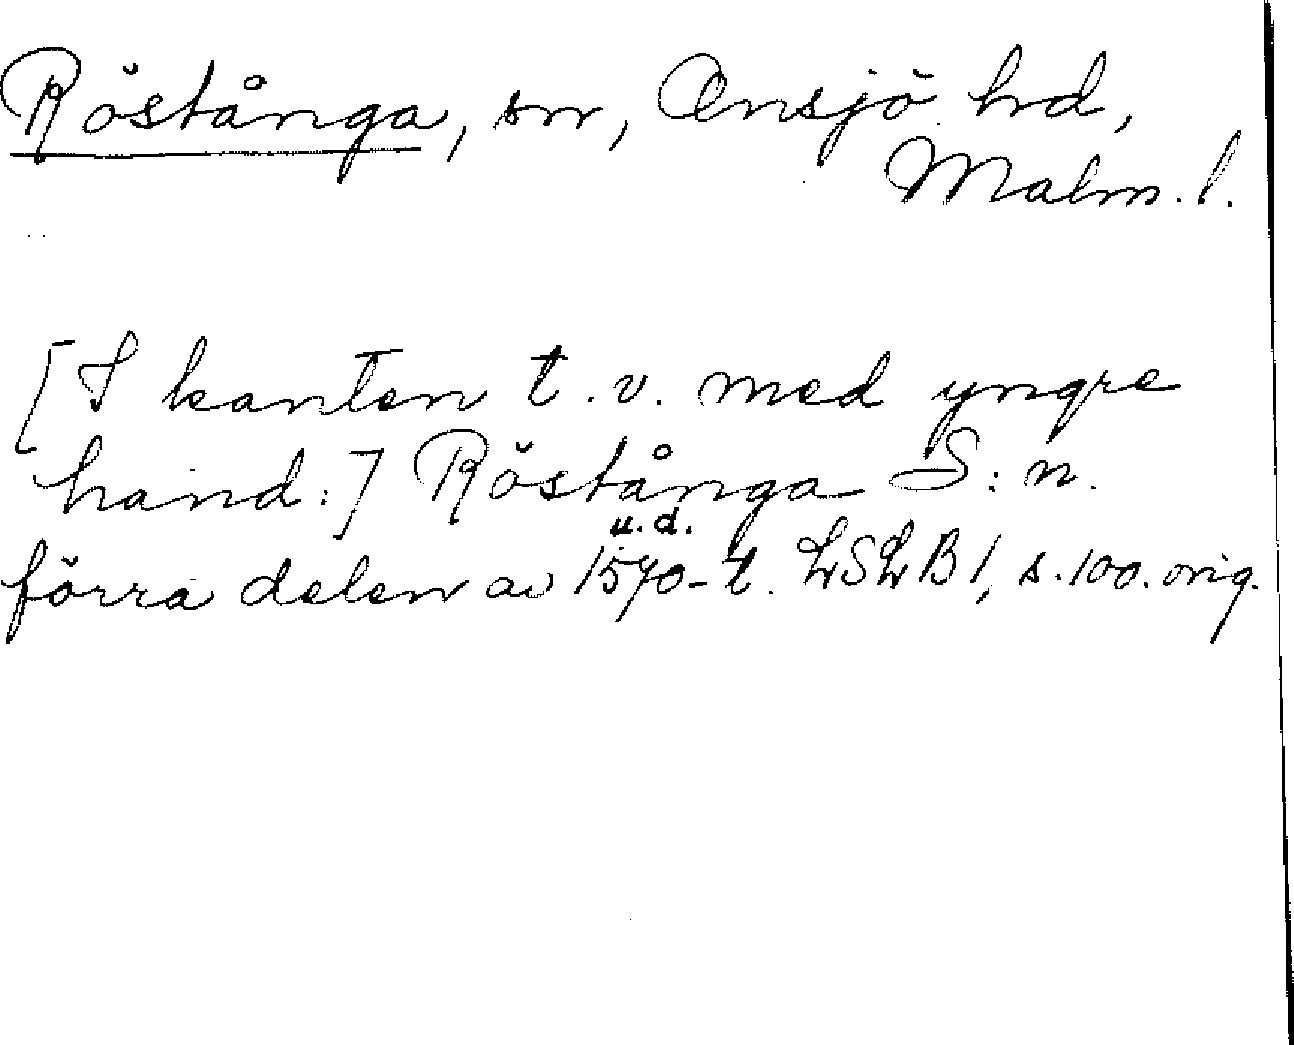 Röstånga, sn, Onsjö hrd,
Malm. l.
[I kanten t.v. med yngre
hand:] Röstånga S:n.
u.d.
förra delen av 1570-t. LSLB1, s.100. orig.